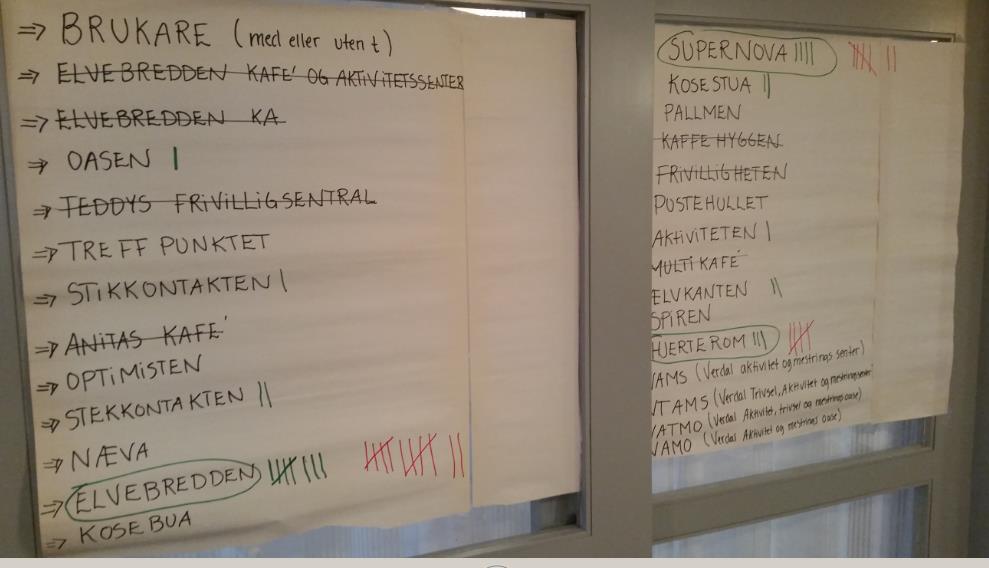 ⇒ BRUKARE (med eller uten t)
⇒ ELVEBREDDEN KAFE' OG AKTIVITETSSENTER
⇒ ELVEBREDDEN KA
⇒ OASEN |
⇒ TEDDYS FRIVILLIGSENTRAL
⇒ TREFF PUNKTET
⇒ STIKKONTAKTEN |
⇒ ANITAS KAFE'
⇒ OPTIMISTEN
⇒ STEKKONTAKTEN ||
⇒ NÆVA
⇒ ELVEBREDDEN |||| ||| |||| |||| ||
⇒ KOSEBUA
SUPERNOVA |||| |||| ||
KOSESTUA ||
PALLMEN
KAFFE HYGGEN
FRIVILLIGHETEN
POSTEHULLET
AKTIVITETEN |
MULTI KAFE'
ELVKANTEN ||
SPIREN
HJERTEROM ||| ||||
VAMS (Verdal aktivitet og mestrings senter)
VTAMS (Verdal Trivsel, Aktivitet og mestringssenter
VATMO (Verdal Aktivitet, trivsel og mestrings oase)
VAMO (Verdal Aktivitet og mestrings oase)